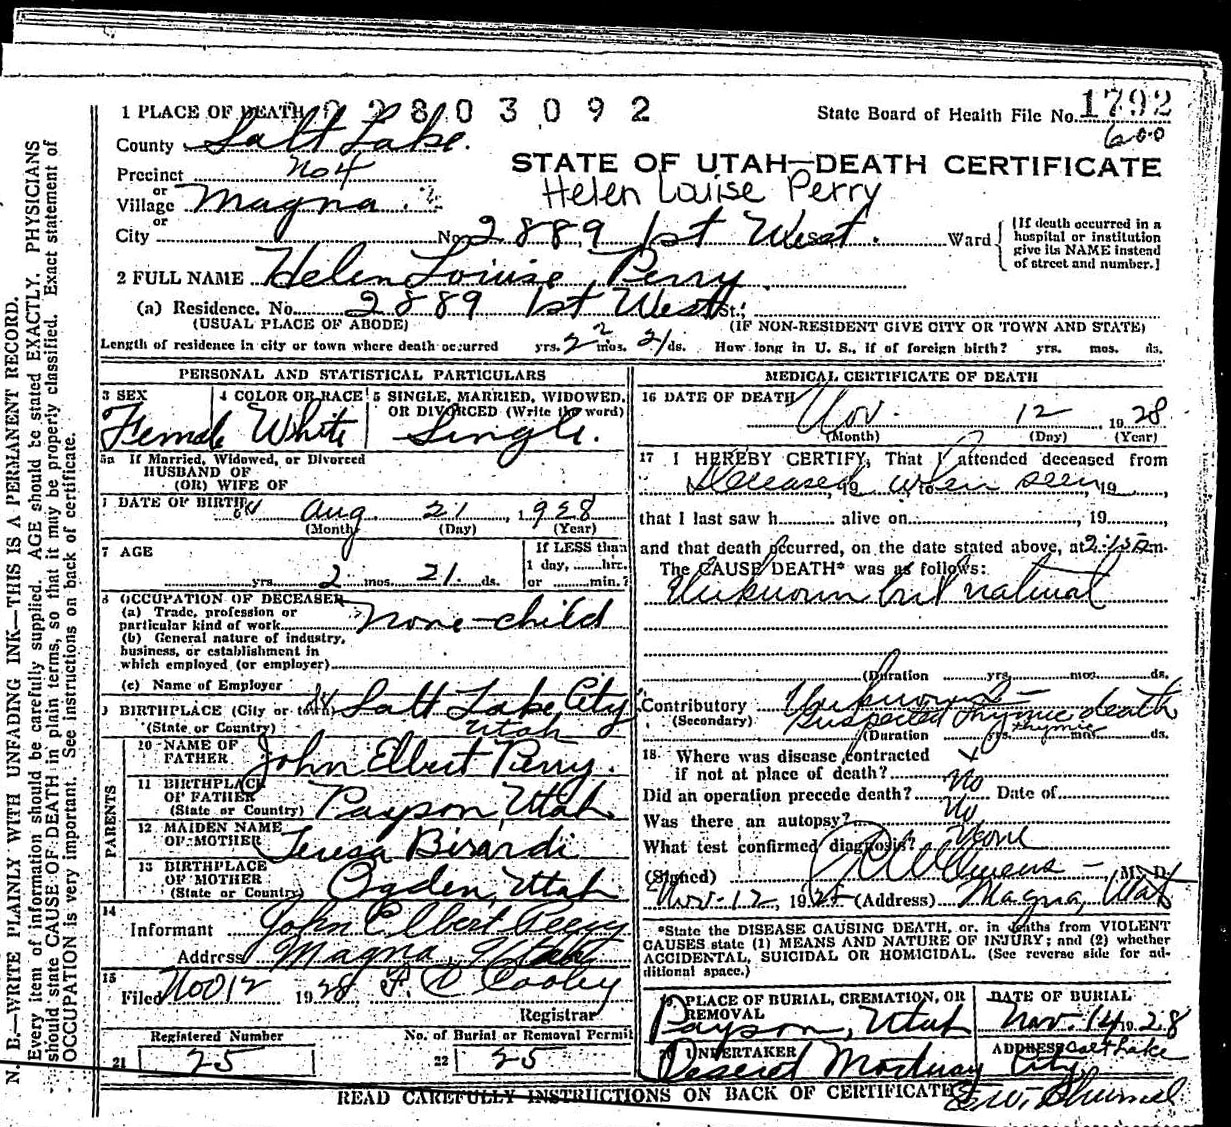 N. B.—WRITE PLAINLY WITH UNFADING INK—THIS IS A PERMANENT RECORD.
Every item of information should be carefully supplied. AGE should be stated EXACTLY. PHYSICIANS
should state CAUSE OF DEATH in plain terms, so that it may be properly classified. Exact statement of
OCCUPATION is very important. See instructions on back of certificate.
1 PLACE OF DEATH 2803092
State Board of Health File No. 1792
600
County Salt Lake.
STATE OF UTAH—DEATH CERTIFICATE
Precinct No 4
Helen Louise Perry
or
Village Magna.
or
City No. 2889 1st West. Ward
[If death occurred in a
hospital or institution
give its NAME instead
of street and number.]
2 FULL NAME Helen Louise Perry
(a) Residence. No. 2889 1st West St.;
(USUAL PLACE OF ABODE) (IF NON-RESIDENT GIVE CITY OR TOWN AND STATE)
Length of residence in city or town where death occurred yrs. 2 mos. 21 ds. How long in U. S., if of foreign birth? yrs. mos. ds.
PERSONAL AND STATISTICAL PARTICULARS
3 SEX
Female
4 COLOR OR RACE
White
5 SINGLE, MARRIED, WIDOWED,
OR DIVORCED (Write the word)
Single.
5a If Married, Widowed, or Divorced
HUSBAND OF
(OR) WIFE OF
DATE OF BIRTH Aug. 21, 1928
(Month) (Day) (Year)
7 AGE
yrs. 2 mos. 21 ds.
If LESS than
1 day, hrs.
or min.?
8 OCCUPATION OF DECEASED
(a) Trade, profession or
particular kind of work None-child
(b) General nature of industry,
business, or establishment in
which employed (or employer)
(c) Name of Employer
9 BIRTHPLACE (City or town) Salt Lake City
(State or Country) Utah
PARENTS
10 NAME OF
FATHER John Elbert Perry.
11 BIRTHPLACE
OF FATHER
(State or Country) Payson, Utah.
12 MAIDEN NAME
OF MOTHER Teresa Birardi
13 BIRTHPLACE
OF MOTHER
(State or Country) Ogden, Utah
14
Informant John Elbert Perry
Address Magna, Utah
15
Filed Nov 12 1928 Cooley
Registrar
Registered Number No. of Burial or Removal Permit
21 25 22 25
MEDICAL CERTIFICATE OF DEATH
16 DATE OF DEATH Nov. 12 1928
(Month) (Day) (Year)
17 I HEREBY CERTIFY, That I attended deceased from
Deceased, 19 when seen, 19,
that I last saw h alive on, 19,
and that death occurred, on the date stated above, at 2:15 m.
The CAUSE DEATH* was as follows:
Unknown but natural
(Duration yrs. mos. ds.
Contributory Unknown
(Secondary) Suspected Thymic death
(Duration yrs. thymic mos. ds.
18. Where was disease contracted
if not at place of death?
Did an operation precede death? No Date of
Was there an autopsy? No
What test confirmed diagnosis? None
(Signed) Owens M. D.
Nov. 12, 1928 (Address) Magna, Utah
*State the DISEASE CAUSING DEATH, or, in deaths from VIOLENT
CAUSES state (1) MEANS AND NATURE OF INJURY; and (2) whether
ACCIDENTAL, SUICIDAL OR HOMICIDAL. (See reverse side for ad-
ditional space.)
PLACE OF BURIAL, CREMATION, OR
REMOVAL
Payson, Utah
DATE OF BURIAL
Nov. 14 1928
UNDERTAKER
Deseret Mortuary
ADDRESS Salt Lake
City
READ CAREFULLY INSTRUCTIONS ON BACK OF CERTIFICATE